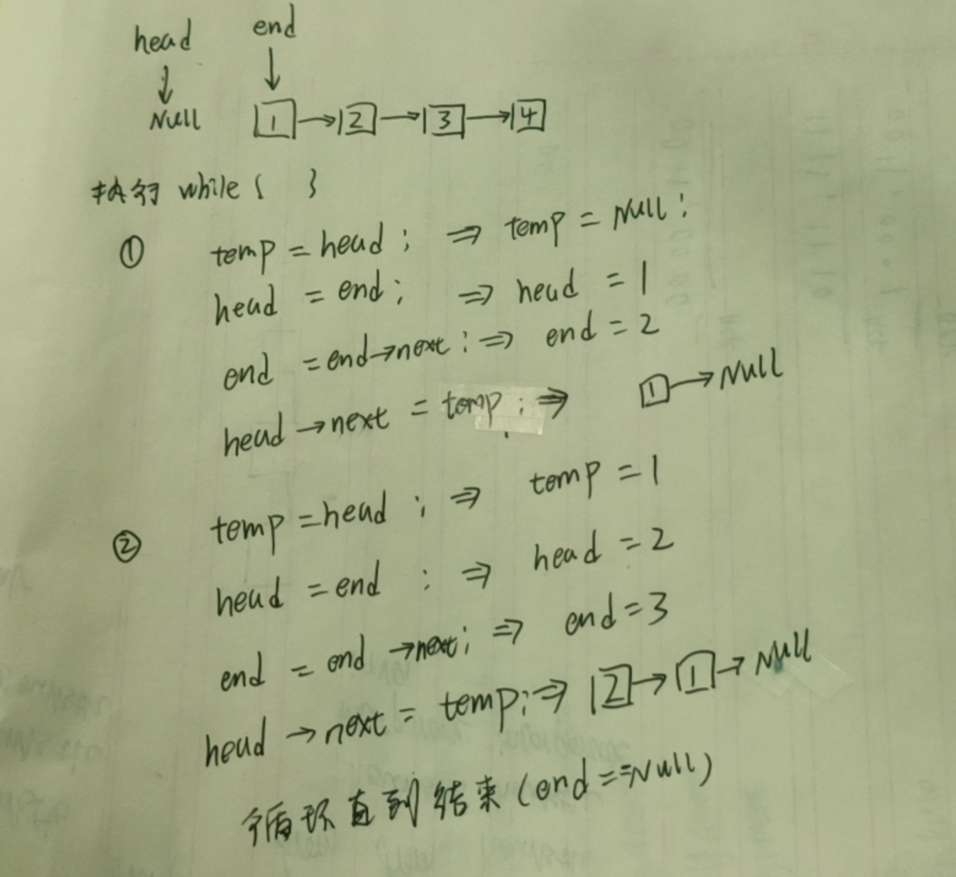 head end
Null 1 → 2 → 3 → 4
执行 while { }
① temp = head ; ⇒ temp = Null ;
head = end ; ⇒ head = 1
end = end→next ; ⇒ end = 2
head →next = temp ; ⇒ 1 → Null
② temp = head ; ⇒ temp = 1
head = end ; ⇒ head = 2
end = end →next ; ⇒ end = 3
head →next = temp ; ⇒ 2 → 1 → Null
循环直到结束(end == Null)